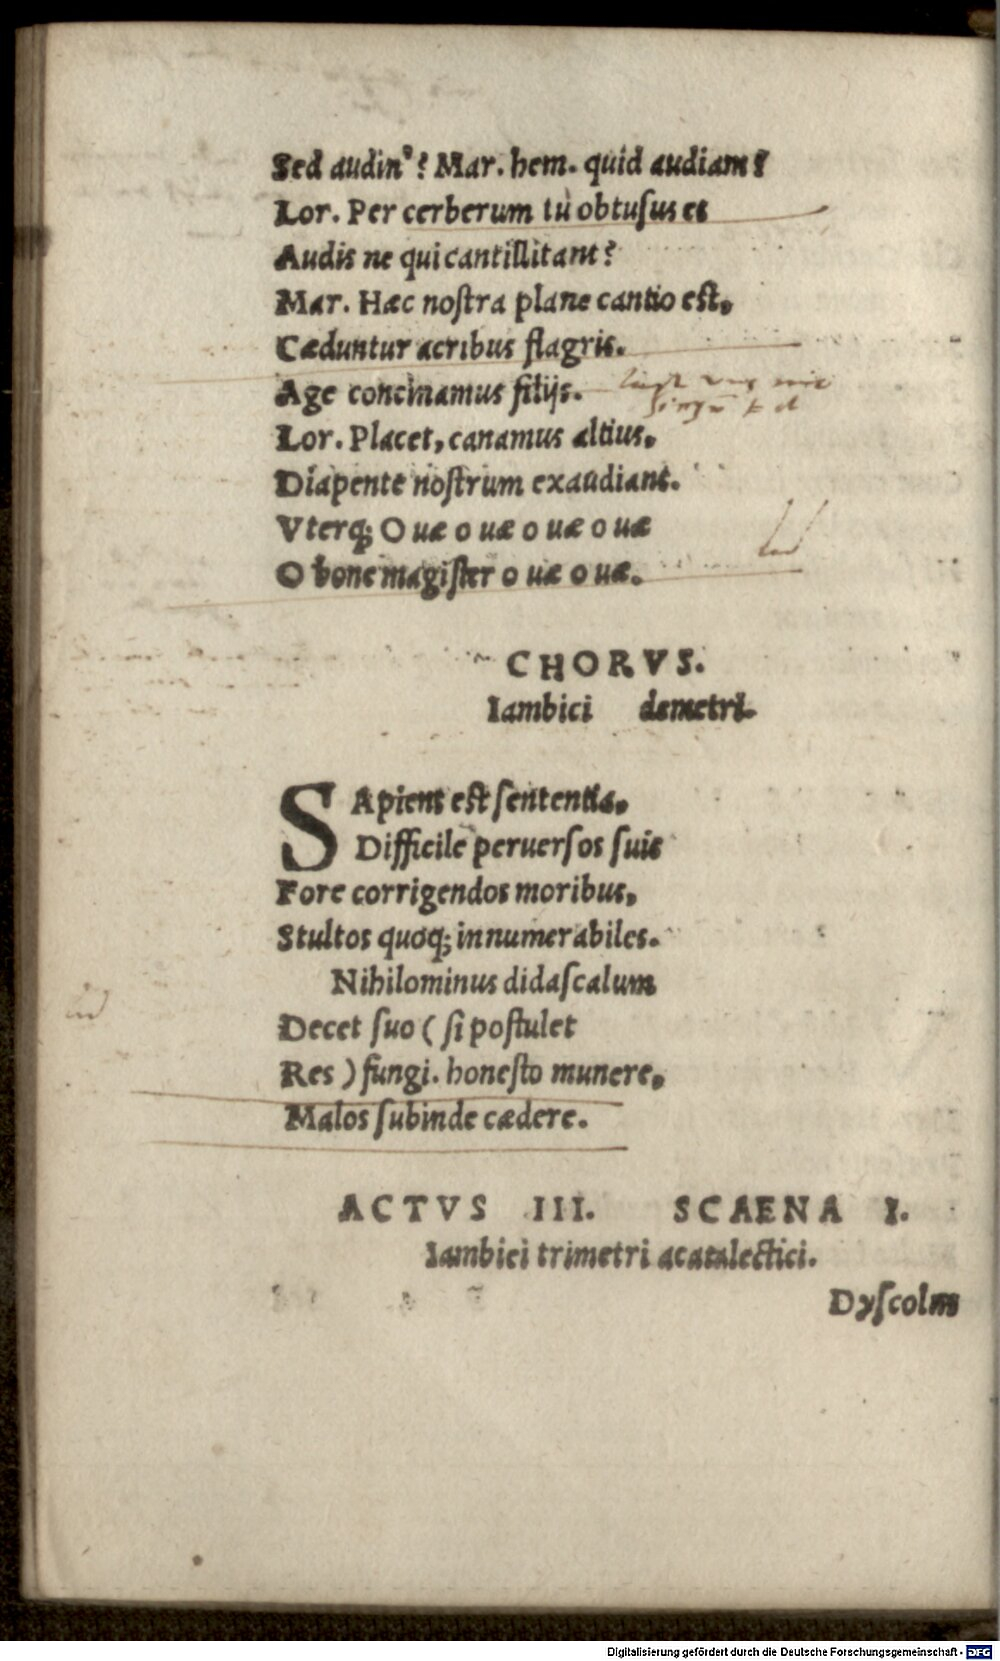 Sed audin'? Mar. hem. quid audiam?
Lor. Per cerberum tu obtusus es
Audis ne qui cantillitant?
Mar. Hæc noſtra plane cantio eſt,
Cæduntur acribus flagris.
Age concinamus filijs.
Lor. Placet, canamus altius,
Diapente noſtrum exaudiant.
Vterq; O uæ o uæ o uæ o uæ
O bone magiſter o uæ o uæ.
CHORVS.
Iambici demetri.
SApiens eſt ſententia,
Difficile peruerſos ſuis
Fore corrigendos moribus,
Stultos quoq; innumerabiles.
Nihilominus didaſcalum
Decet ſuo ( ſi poſtulet
Res ) fungi. honeſto munere,
Malos ſubinde cædere.
ACTVS III. SCAENA I.
Iambici trimetri acatalectici.
Dyſcolus
Digitalisierung gefördert durch die Deutsche Forschungsgemeinschaft - DFG